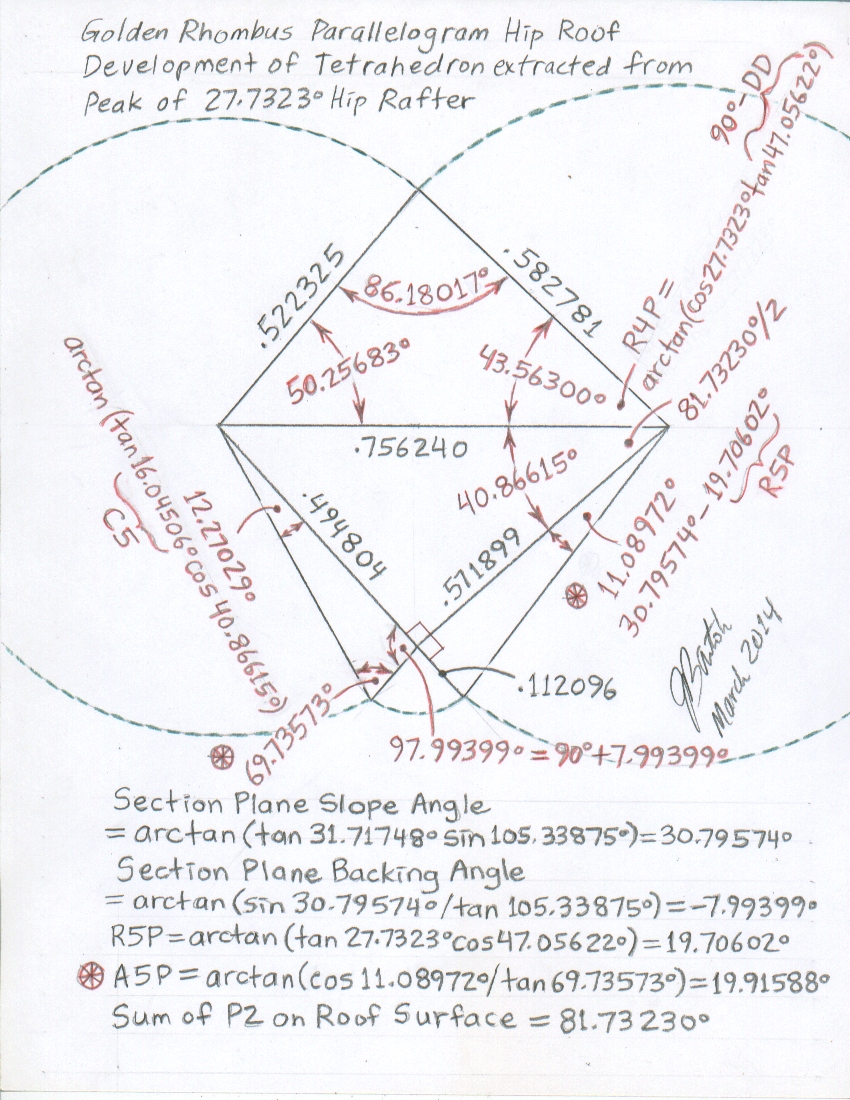 Golden Rhombus Parallelogram Hip Roof
Development of Tetrahedron extracted from
Peak of 27.7323° Hip Rafter
90°-DD
R4P =
arctan(cos27.7323°tan47.05622°)
.522325
.582781
86.18017°
50.25683°
43.56300°
81.73230°/2
.756240
40.86615°
11.08972°
30.79574° - 19.70602°
R5P
arctan(tan16.04506°cos 40.86615°)
C5
12.27029°
.494804
.571899
.112096
69.73573°
97.99399° = 90°+7.99399°
JBartok
March 2014
Section Plane Slope Angle
= arctan (tan 31.71748° sin 105.33875°) = 30.79574°
Section Plane Backing Angle
= arctan (sin 30.79574°/tan 105.33875°) = -7.99399°
R5P = arctan (tan 27.7323°cos47.05622°) = 19.70602°
A5P = arctan(cos 11.08972°/tan69.73573°) = 19.91588°
Sum of P2 on Roof Surface = 81.73230°